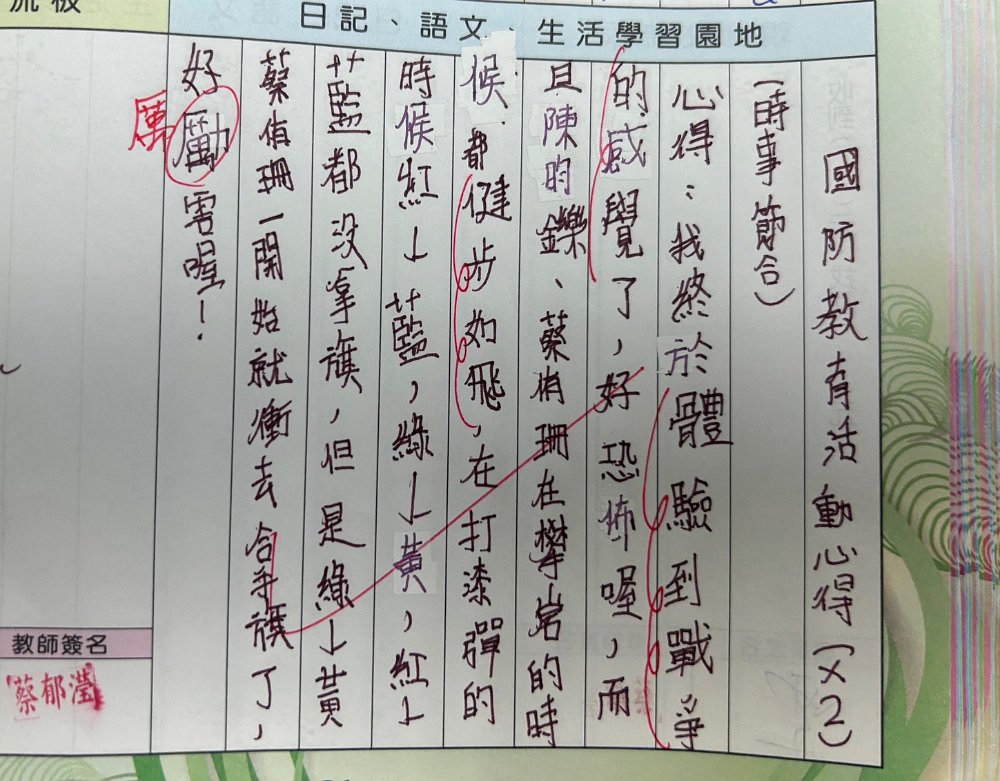 日記、語文、生活學習園地
國防教育活動心得(×2)
(時事節合)
心得:我終於體驗到戰爭
的感覺了,好恐怖喔,而
且陳昀鑠、蔡侑珊在攀岩的時
候都健步如飛,在打漆彈的
時候紅↓藍,綠↓黃,紅↓
藍都沒拿旗,但是綠↓黃
蔡侑珊一開始就衝去拿旗了,
好勵害喔!
厲
教師簽名
蔡郁瀅